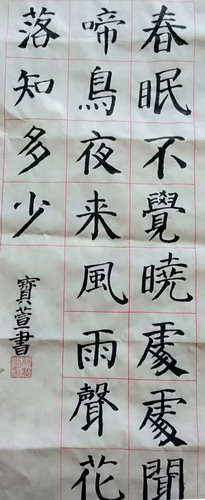 春眠不覺曉處處聞
啼鳥夜来風雨聲花
落知多少
寶萱書